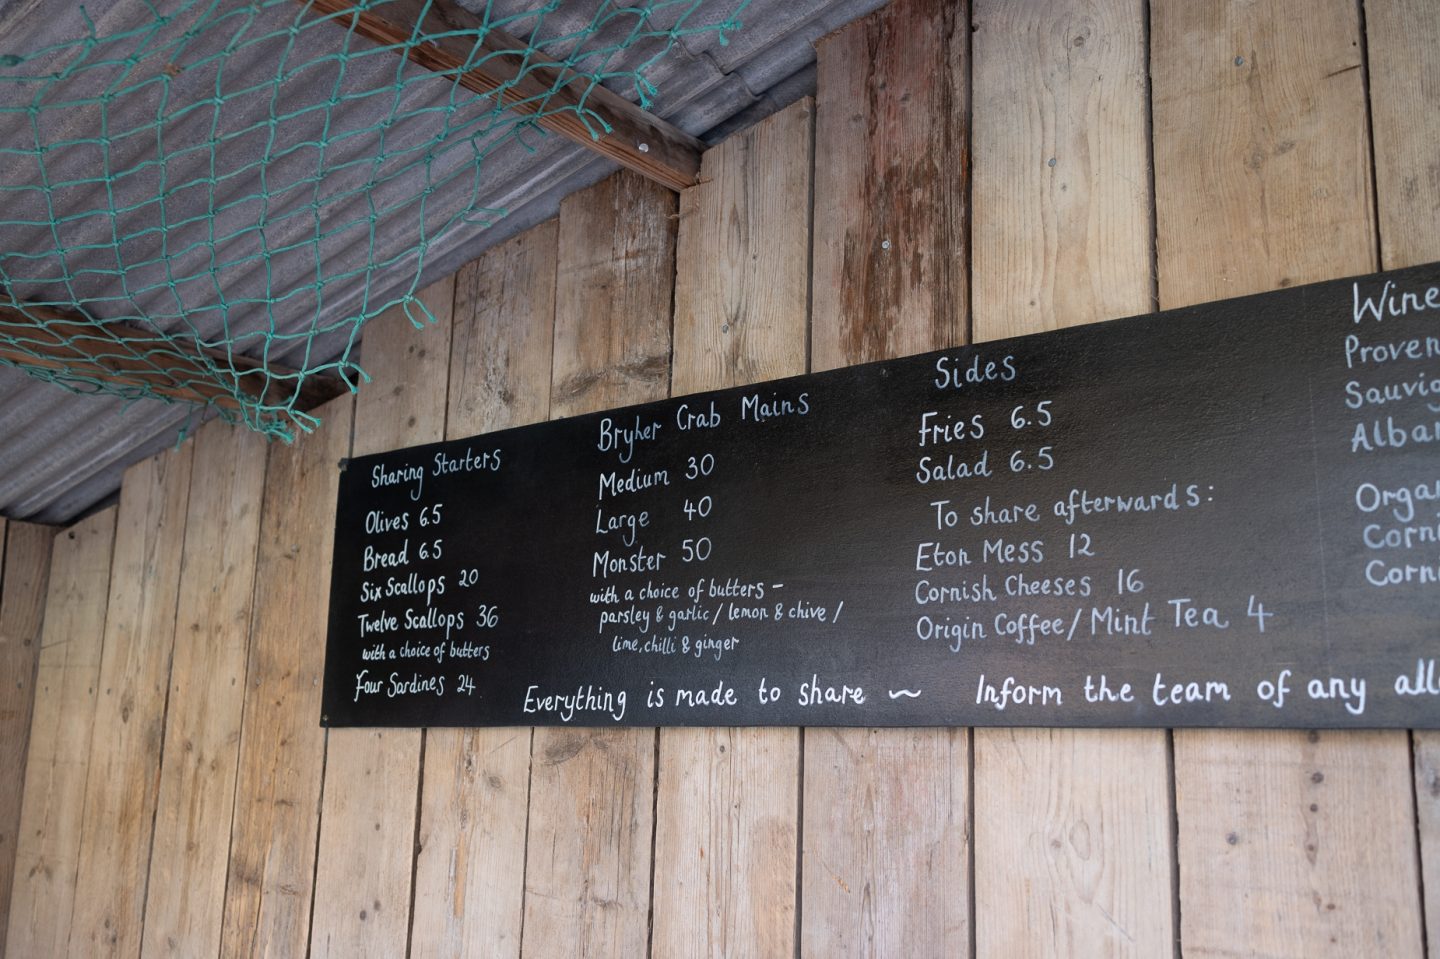 Sharing Starters
Olives 6.5
Bread 6.5
Six Scallops 20
Twelve Scallops 36
with a choice of butters
Four Sardines 24
Bryher Crab Mains
Medium 30
Large 40
Monster 50
with a choice of butters –
parsley & garlic / lemon & chive /
lime, chilli & ginger
Sides
Fries 6.5
Salad 6.5
To share afterwards:
Eton Mess 12
Cornish Cheeses 16
Origin Coffee / Mint Tea 4
Wine
Everything is made to share ~ Inform the team of any